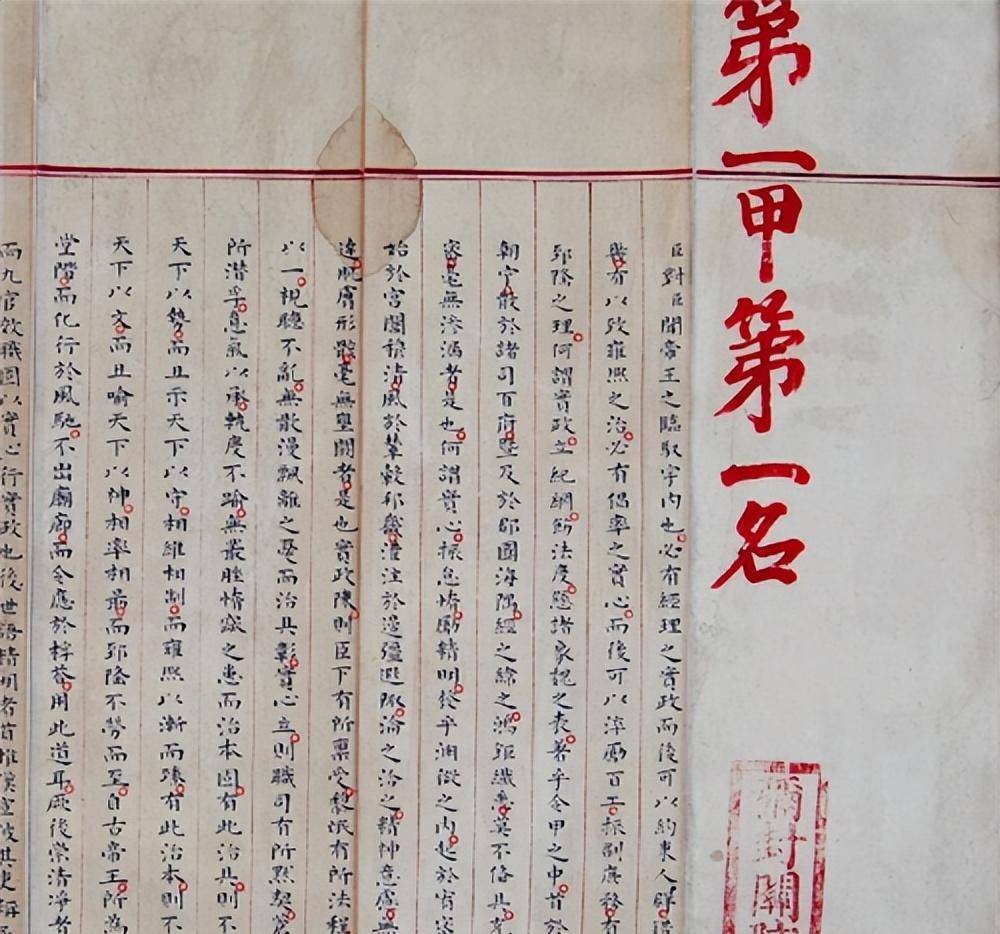 第一甲第一名
彌封關防
臣對臣聞帝王之臨馭宇內也必有經理之實政而後可以約束人群錯
幾有以致雍熙之治必有倡率之實心而後可以淬勵百工振刷庶務有
郅隆之理何謂實政立紀綱飭法度懸諸象魏之表著乎令甲之中首於
朝宁散於諸司百府暨及於郡國海隅經之緯之鴻鉅纖悉莫不備具充
密毫無滲漏者是也何謂實心振怠惰勵精明發乎淵微之內起於宥密
始於宮闈穆清風於輦轂邦畿灌注於邊疆遐陬淪之洽之精神意慮無
達肌膚形骸毫無壅閼者是也實政陳則臣下有所稟受黎氓有所法程
以一視聽不亂無散漫飄離之憂而治具彰實心立則職司有所默契蒼
所潛孚意氣以承軌度不踰無叢脞惰窳之患而治本固有此治具則不
天下以勢而且示天下以守相維相制而雍熙以漸而臻有此治本則不
天下以文而且喻天下以神相率相勗而郅隆不勞而至自古帝王所為
堂階而化行於風馳不出廟廊而令應於桴答用此道耳厥後崇清淨者
而九官效職固以實心行實政也後世語精明者首推漢宣彼其吏稱